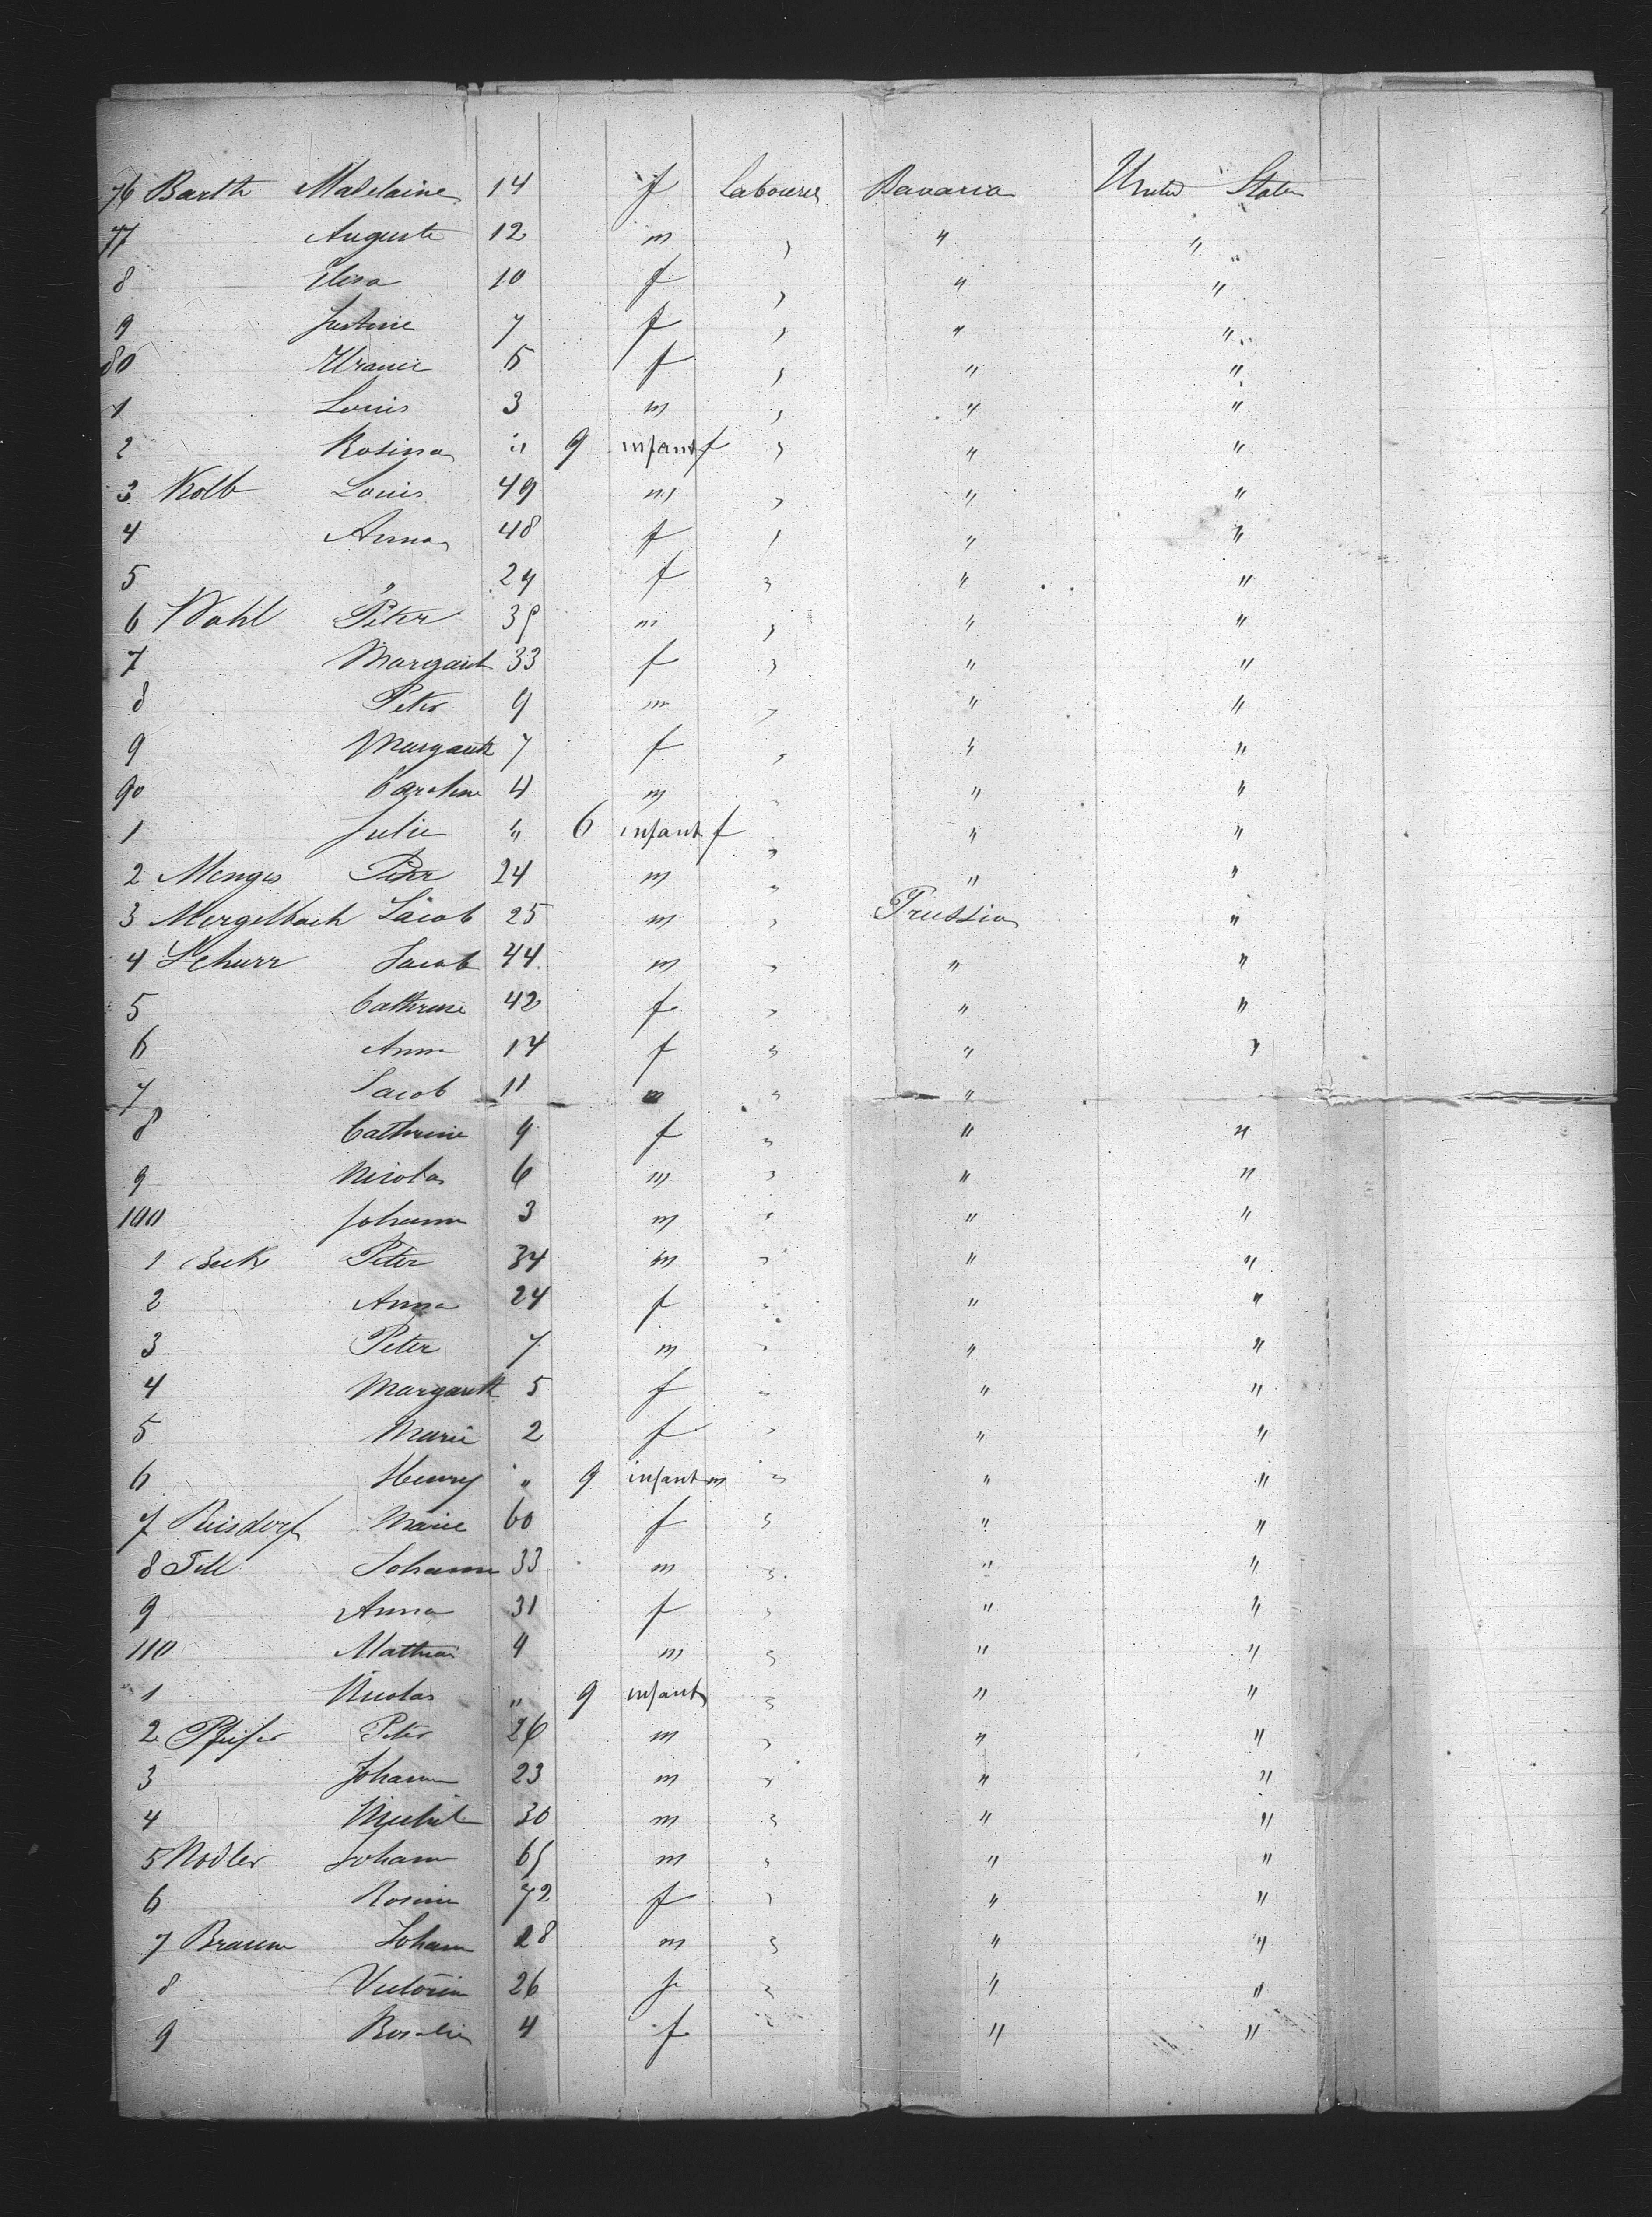 76 Barth Madelaine 14 f Labourer Bavaria United States
77 Auguste 12 m " " "
8 Elisa 10 f " " "
9 Justine 7 f " " "
80 Uranie 5 f " " "
1 Louis 3 m " " "
2 Rosina " 9 infant f " " "
3 Kolb Louis 49 m " " "
4 Anna 48 f " " "
5 " 24 f " " "
6 Wahl Peter 39 m " " "
7 Margaret 33 f " " "
8 Peter 9 m " " "
9 Margareth 7 f " " "
90 Caroline 4 m " " "
1 Julie " 6 infant f " " "
2 Menges Peter 24 m " " "
3 Mergelbach Jacob 25 m " Prussia "
4 Schurr Jacob 44 m " " "
5 Cathrine 42 f " " "
6 Anna 14 f " " "
7 Jacob 11 m " "
8 Cathrine 9 f " " "
9 Nicolas 6 m " " "
100 Johann 3 m " " "
1 Beck Peter 34 m " " "
2 Anna 24 f " " "
3 Peter 7 m " " "
4 Margareth 5 f " " "
5 Marie 2 f " " "
6 Henry " 9 infant m " " "
7 Reisdorf Marie 60 f " " "
8 Till Johann 33 m " " "
9 Anna 31 f " " "
110 Mathias 4 m " " "
1 Nicolas " 9 infant " " "
2 Pfeifer Peter 26 m " " "
3 Johann 23 m " " "
4 Michel 30 m " " "
5 Nodler Johann 65 m " " "
6 Rosine 72 f " " "
7 Braun Johann 28 m " " "
8 Victoria 26 f " " "
9 Rosalie 4 f " " "